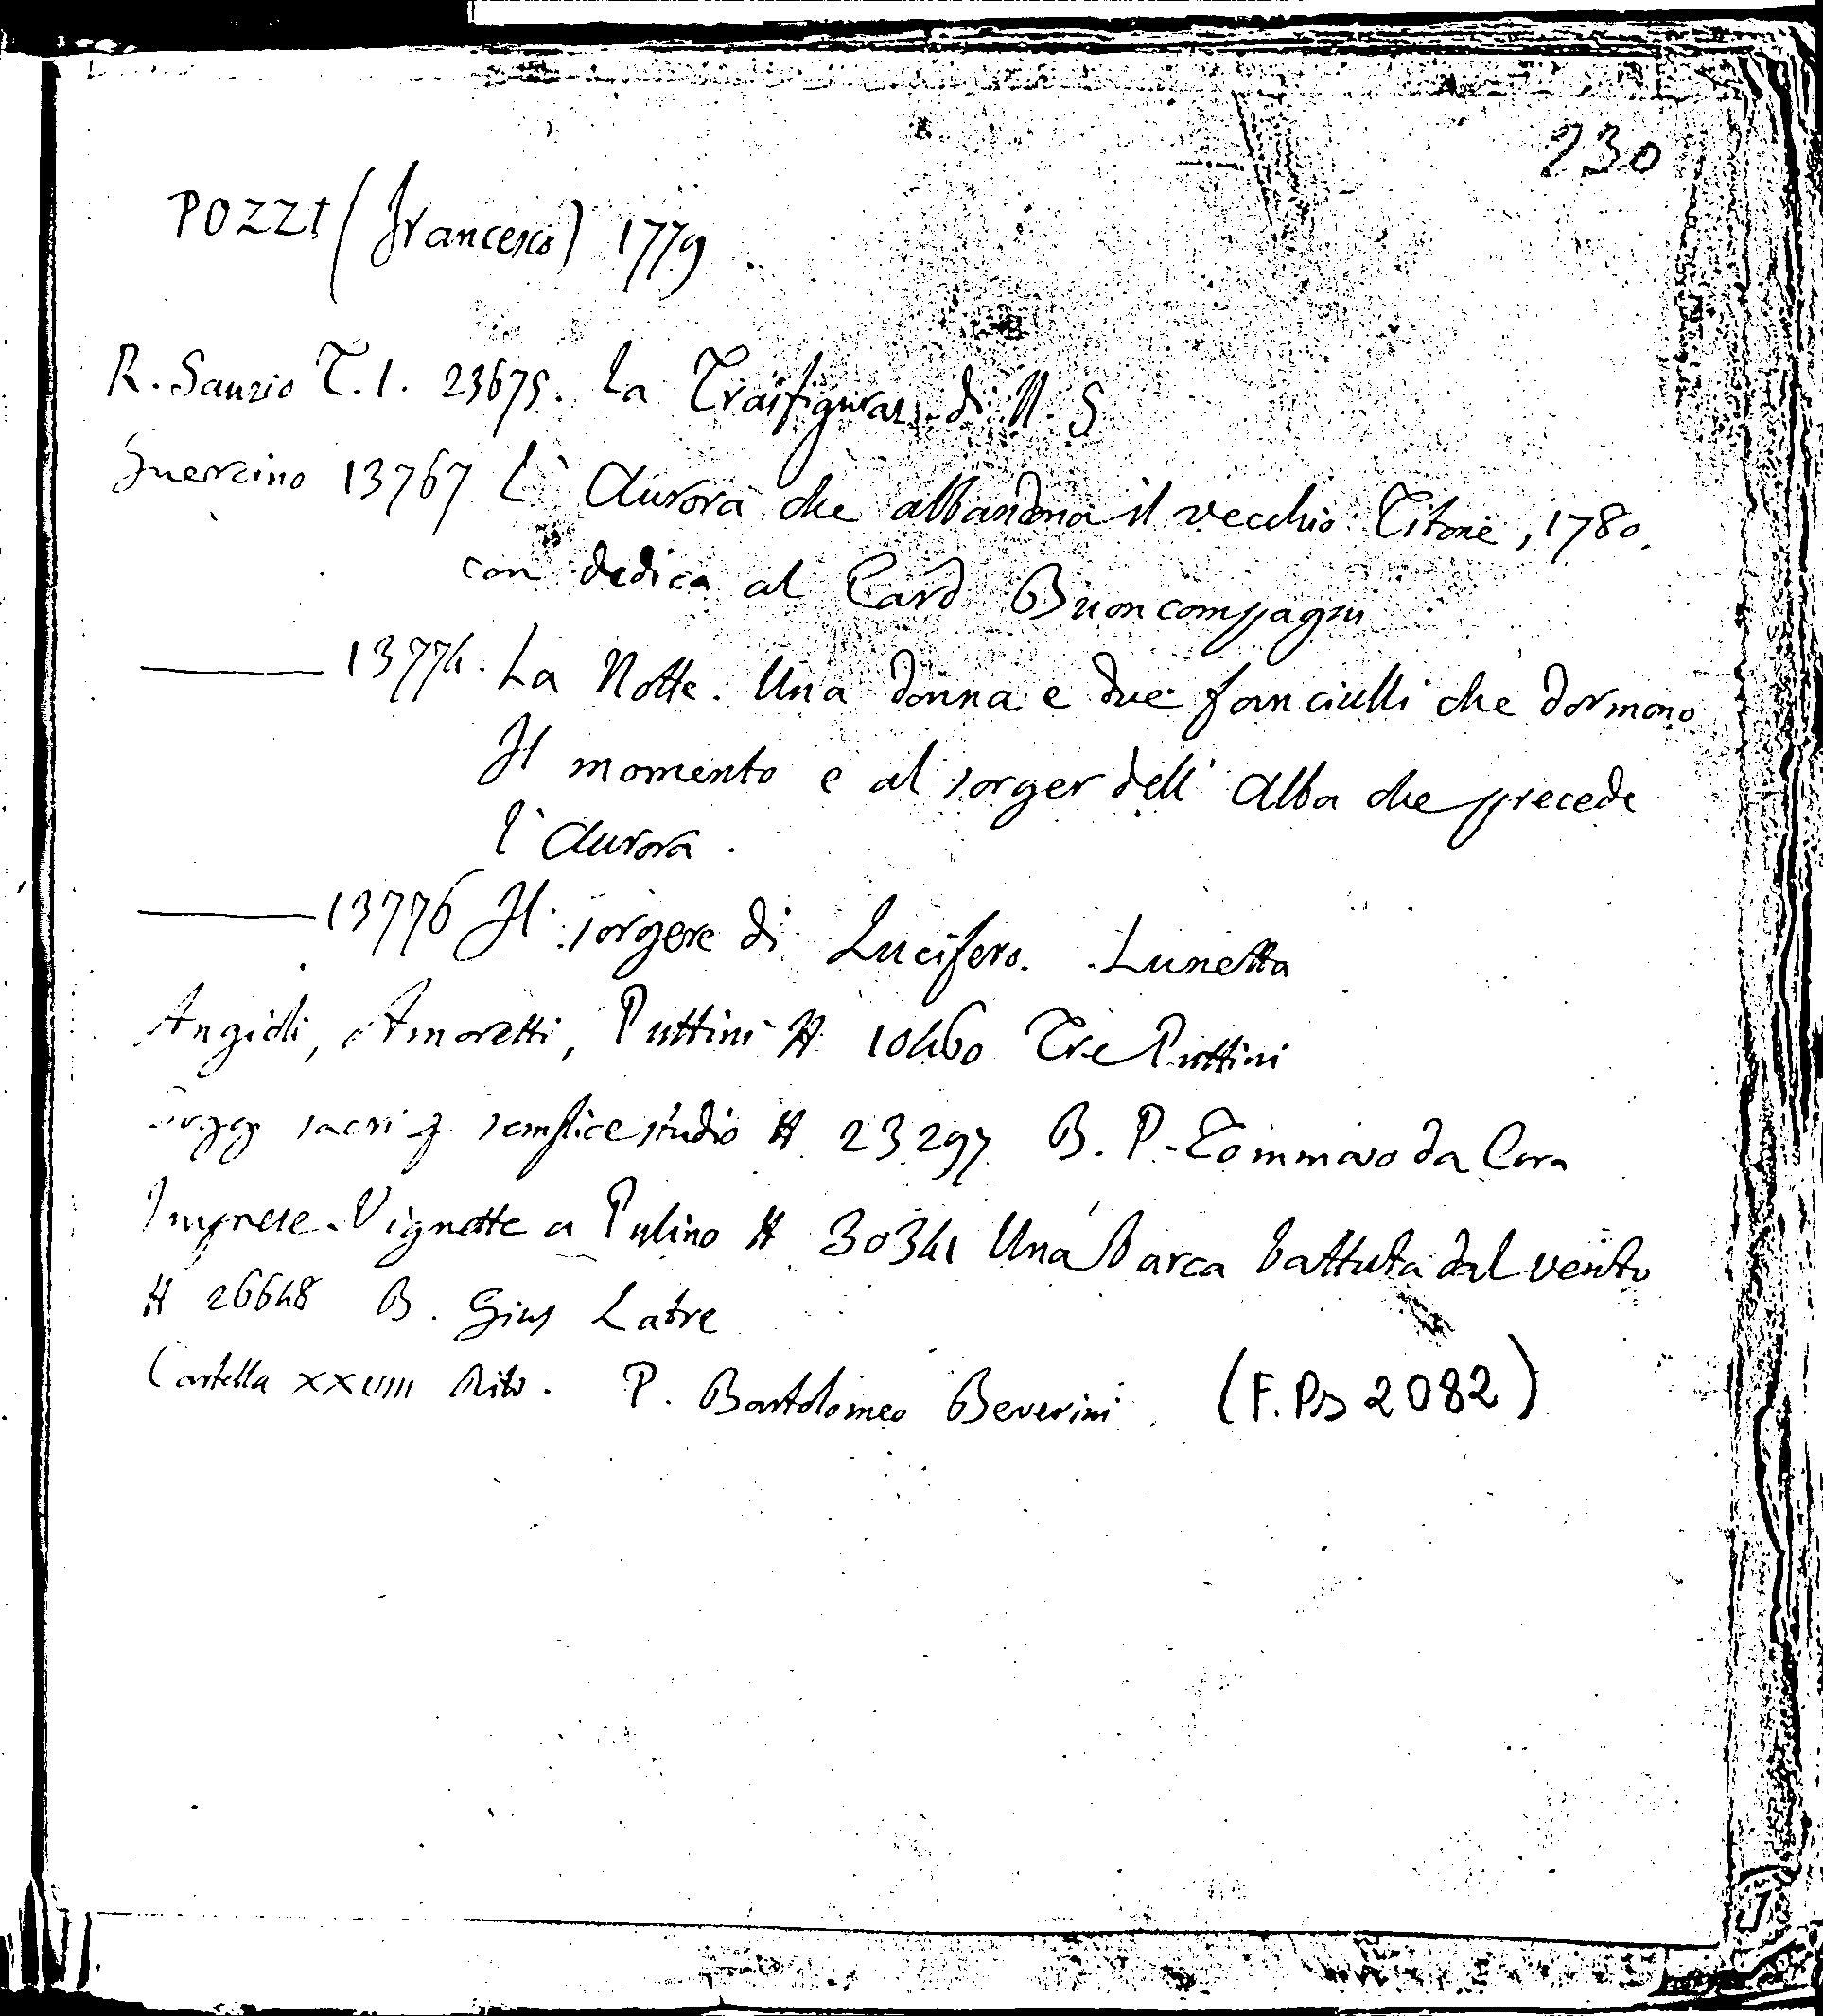 230
POZZI (Francesco) 1779
R. Sanzio T. 1. 23675. La Trasfiguraz. di N. S
Guercino 13767 L'Aurora che abbandona il vecchio Titone, 1780.
con dedica al Card Buoncompagni
——— 13774. La Notte. Una donna e due fanciulli che dormono
Il momento e al sorger dell'Alba che precede
l'Aurora.
——— 13776 Il sorgere di Lucifero. Lunetta
Angioli, Amoretti, Puttini # 10460 Tre Puttini
sacri semplice studio # 23297 B. P. Tommaso da Cora
Imprese. Vignette a Pulino # 30341 Una barca battuta dal vento
# 26648 B. Gius Labre
Cartella XXVIII Ritr. P. Bartolomeo Beverini. (F. PB 2082)